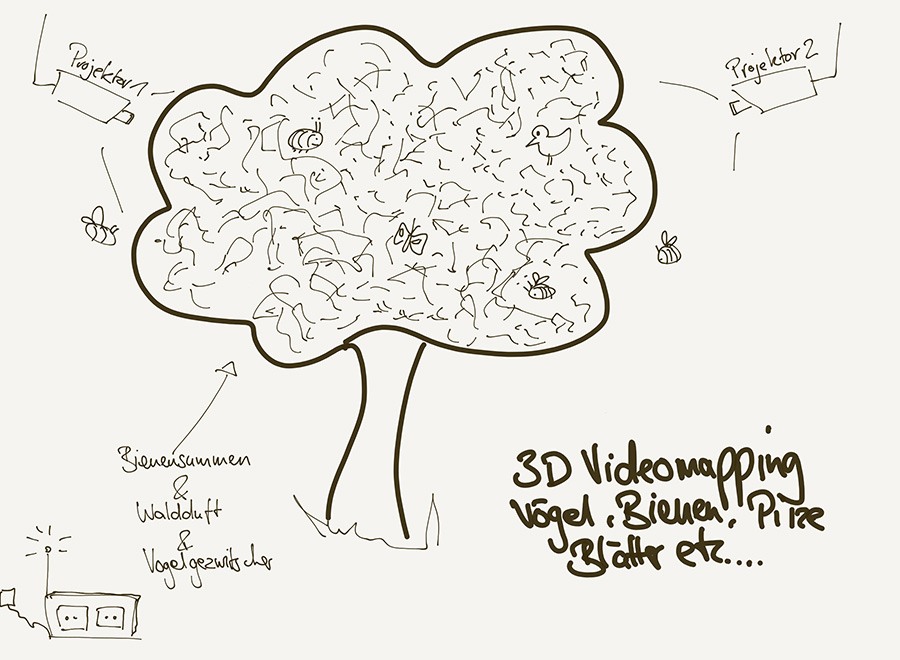 Projektor 1
Projektor 2
Bienensummen
&
Waldduft
&
Vogelgezwitscher
3D Videomapping
Vögel, Bienen, Pilze
Blätter etc....